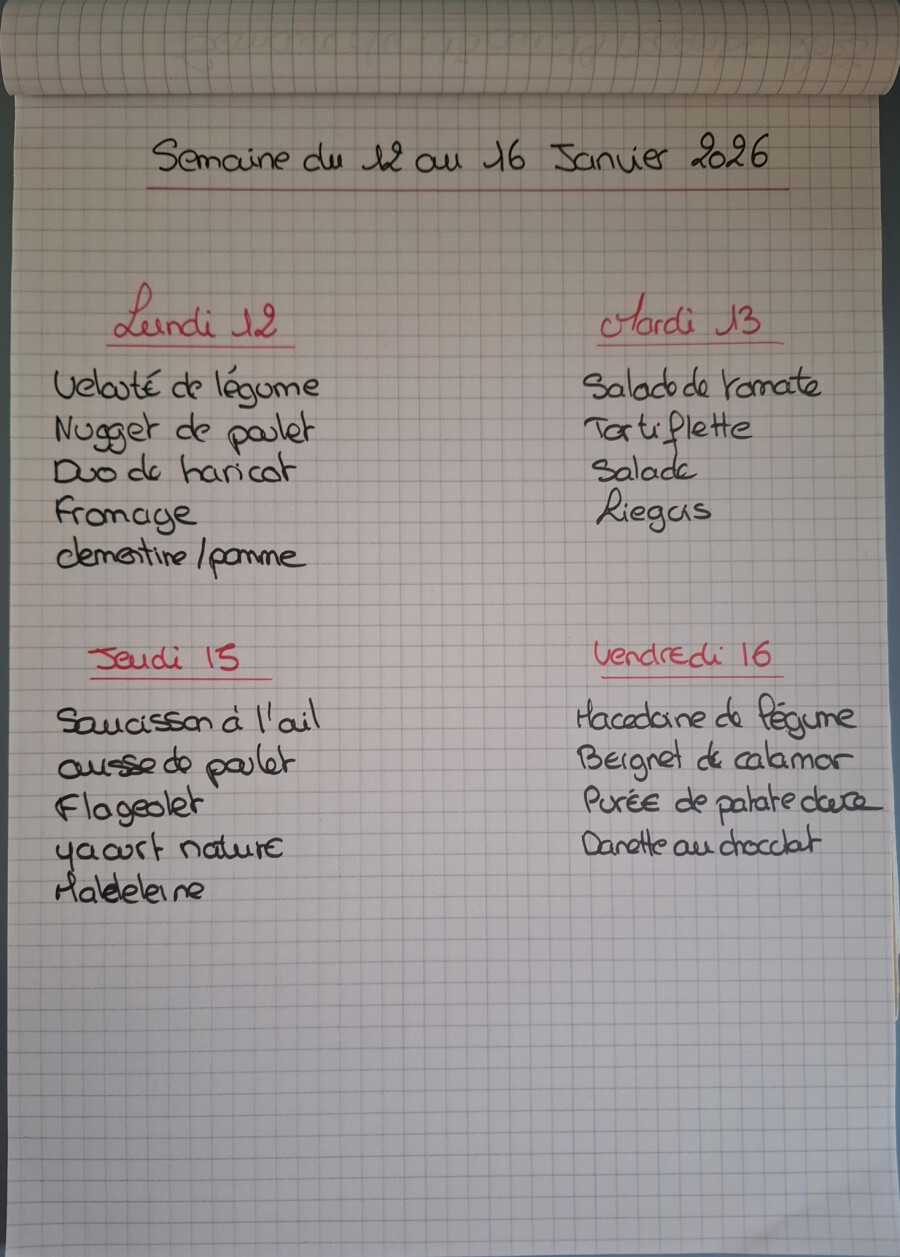 Semaine du 12 au 16 Janvier 2026
Lundi 12
Velouté de légume
Nugget de poulet
Duo de haricot
Fromage
clementine / pomme
Mardi 13
Salade de tomate
Tartiflette
Salade
Liegois
Jeudi 15
Saucisson à l'ail
cuisse de poulet
Flageolet
yaourt nature
Madeleine
Vendredi 16
Macedoine de légume
Beignet de calamar
Purée de patate douce
Danette au chocolat